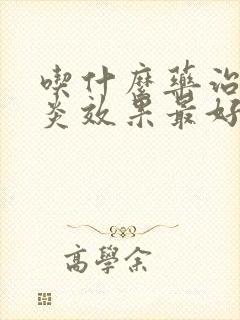 喫什麼藥治
炎效果最好
高學余